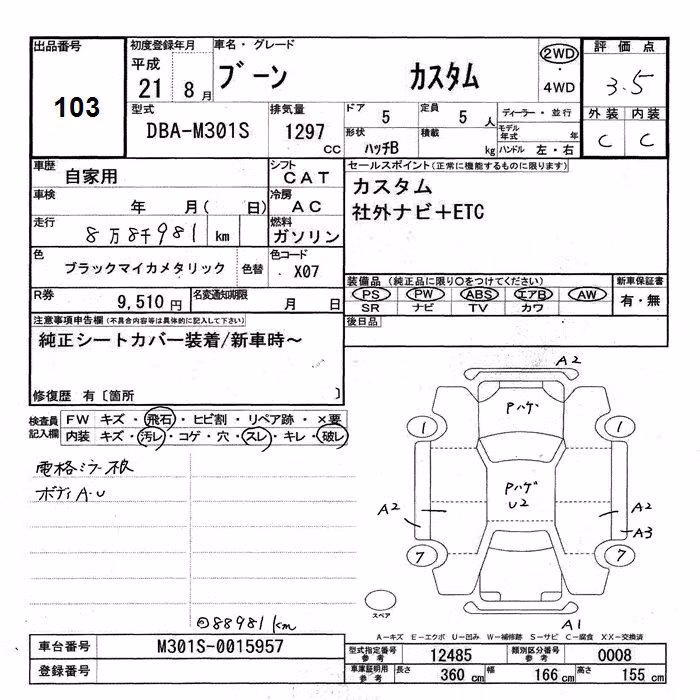 出品番号
103
初度登録年月
平成
21 8月
車名・グレード
ブーン カスタム
2WD
・
4WD
評価点
3.5
外装 内装
C C
型式
DBA-M301S
排気量
1297
CC
ドア
5
定員
5人
ディーラー・並行
形状
ハッチB
積載
kg
モデル年式 年
ハンドル 左・右
車歴
自家用
シフト
CAT
車検
年 月( 日)
冷房
AC
走行
8万8千981 km
燃料
ガソリン
色
ブラックマイカメタリック
色替
色コード
X07
R券
9,510円
名変通知期限
月 日
セールスポイント(正常に機能するものに限ります)
カスタム
社外ナビ+ETC
装備品(純正品に限り○をつけてください)
PS PW ABS エアB AW
SR ナビ TV カワ
新車保証書
有・無
後日品
注意事項申告欄(不具合内容等は具体的に記入して下さい)
純正シートカバー装着/新車時~
修復歴 有〔箇所 〕
検査員
記入欄
FW キズ・飛石・ヒビ割・リペア跡・×要
内装 キズ・汚レ・コゲ・穴・スレ・キレ・破レ
電格ミラー不良
ボディA・U
88981km
A2
Pハゲ
1 1
Pハゲ
U2
A2 A2
A3
7 7
スペア
A1
A-キズ E-エクボ U-凹み W-補修跡 S-サビ C-腐食 XX-交換済
車台番号
M301S-0015957
登録番号
型式指定番号
参考
12485
類別区分番号
参考
0008
車庫証明用
参考
長さ 360cm 幅 166cm 高さ 155cm